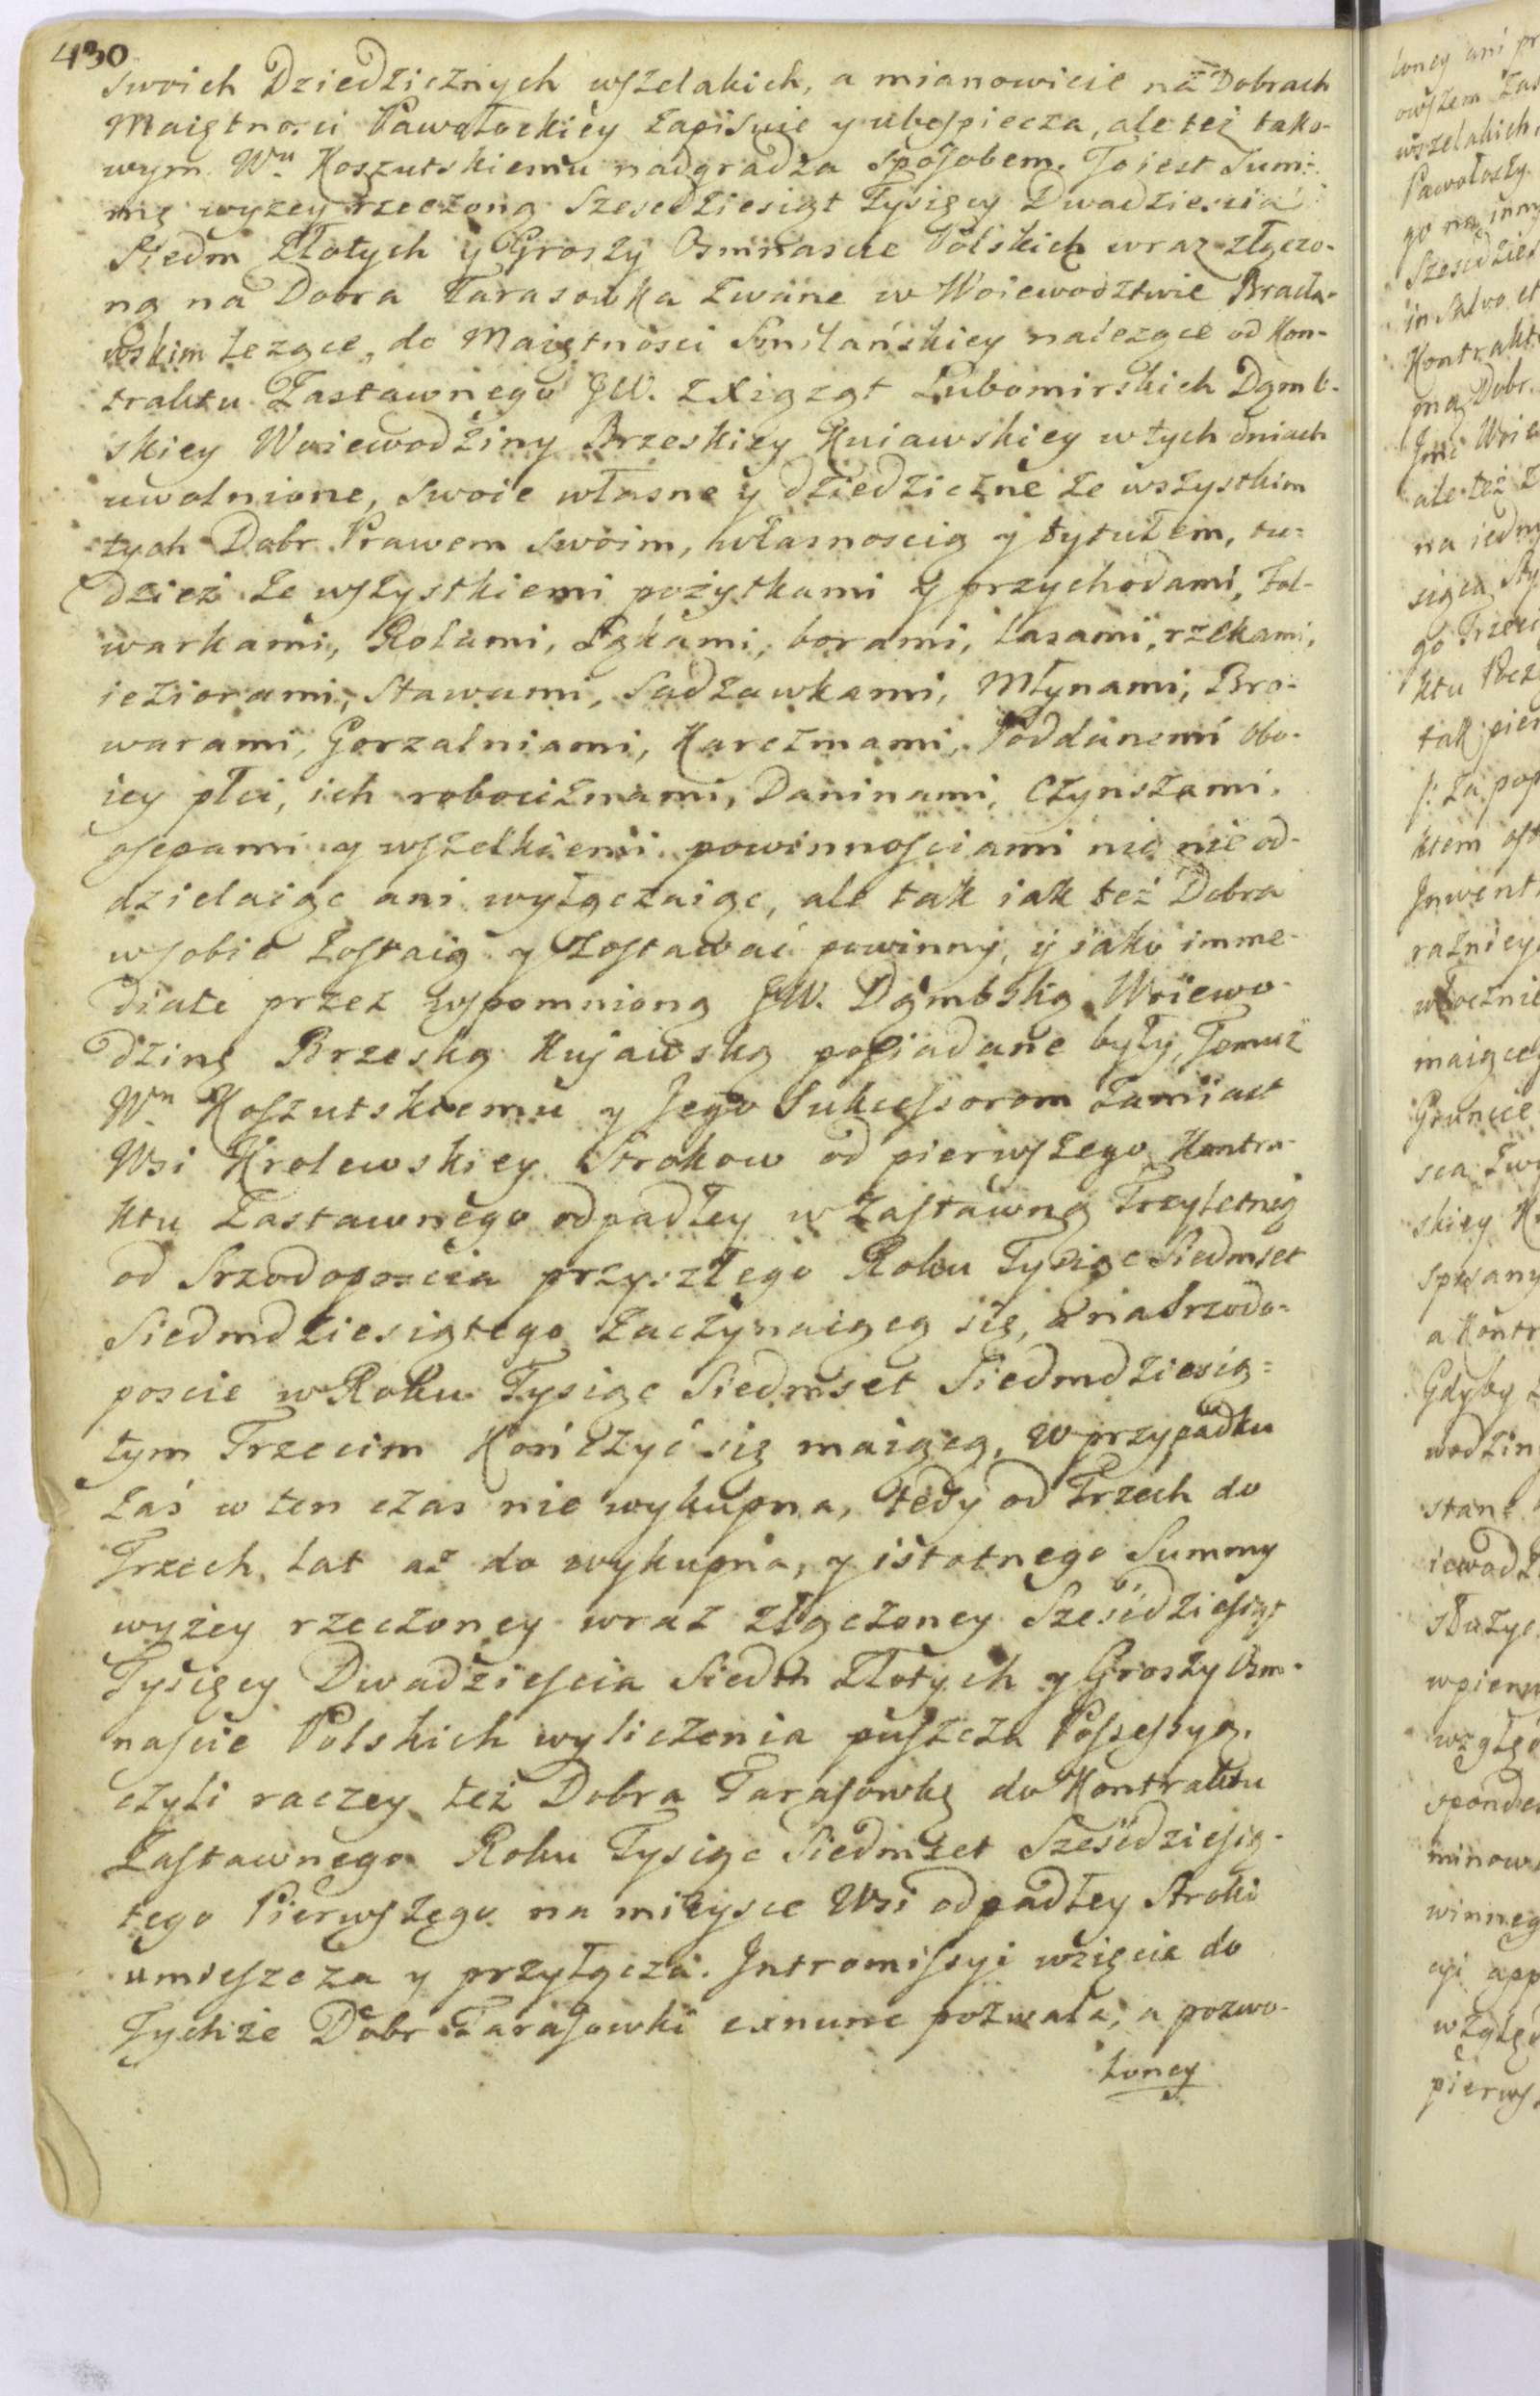 430
swoich Dziedzicznych wszelakich, a mianowicie na Dobrach
Maiętnosci Pawołockiey zapisuie y ubespiecza, ale też tako-
wym Wu. Koszutskiemu nadgradza sposobem. To iest Sum-
mę wyzey rzeczoną Szescdziesiąt Tysięcy Dwadziescia
Siedm Złotych y Groszy Osmnascie Polskich wraz złączo-
ną na Dobra Tarasowka zwane w Woiewodztwie Bracła-
wskim leżące, do Maiętnosci Smilańskiey nalezące od Kon-
traktu Zastawnego JW. z Xiążąt Lubomirskich Dąmb-
skiey Woiewodziny Brzeskiey Kuiawskiey w tych dniach
uwolnione, swoie własne y dziedziczne ze wszystkim
tych Dobr Prawem swoim, własnoscią y tytułem, tu-
dzież ze wszystkiemi pożytkami y przychodami, Fol-
warkami, Rolami, Łąkami, borami, lasami, rzekami,
ieziorami, Stawami, Sadzawkami, Młynami, Bro-
warami, Gorzalniami, Karczmami, Poddanemi obo-
iey płci, ich robociznami, Daninami, Czynszami,
osepami y wszelkiemi powinnosciami nic nie od-
dzielaiąc ani wyłączaiąc, ale tak iak też Dobra
w sobie zostaią y zostawać powinny, y iako imme-
diate przez wspomnioną JW. Dąmbską Woiewo-
dzinę Brzeską Kujawską posiadane były, Temuż
Wn. Koszutskiemu y Jego Sukcessorom zamiast
Wsi Krolewskiey Strokow od pierwszego Kontra-
ktu Zastawnego odpadłey w zastawną Trzyletnią
od Srzodoposcia przyszłego Roku Tysiąc Siedmset
Siedmdziesiątego zaczynaiącą się, a na Srzodo-
poscie w Roku Tysiąc Siedmset Siedmdziesią-
tym Trzecim kończyć się maiącą, w przypadku
zaś w ten czas nie wykupna, tedy od Trzech do
Trzech lat aż do wykupna, y istotnego Summy
wyżey rzeczoney wraz złączoney Sześćdziesiąt
Tysięcy Dwadziescia Siedm Złotych y Groszy Osm-
nascie Polskich wyliczenia puszcza Possessyą,
czyli raczey też Dobra Tarasowkę do Kontraktu
Zastawnego Roku Tysiąc Siedmset Sześćdziesią-
tego Pierwszego na mieysce Wsi odpadłey Stroki
umieszcza y przyłącza. Intromissyi wzięcie do
Tychże Dobr Tarasowki exnunc pozwala, a pozwo-
loney